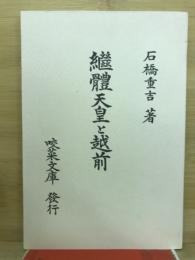 石橋重吉 著
繼體天皇と越前
咬菜文庫 發行